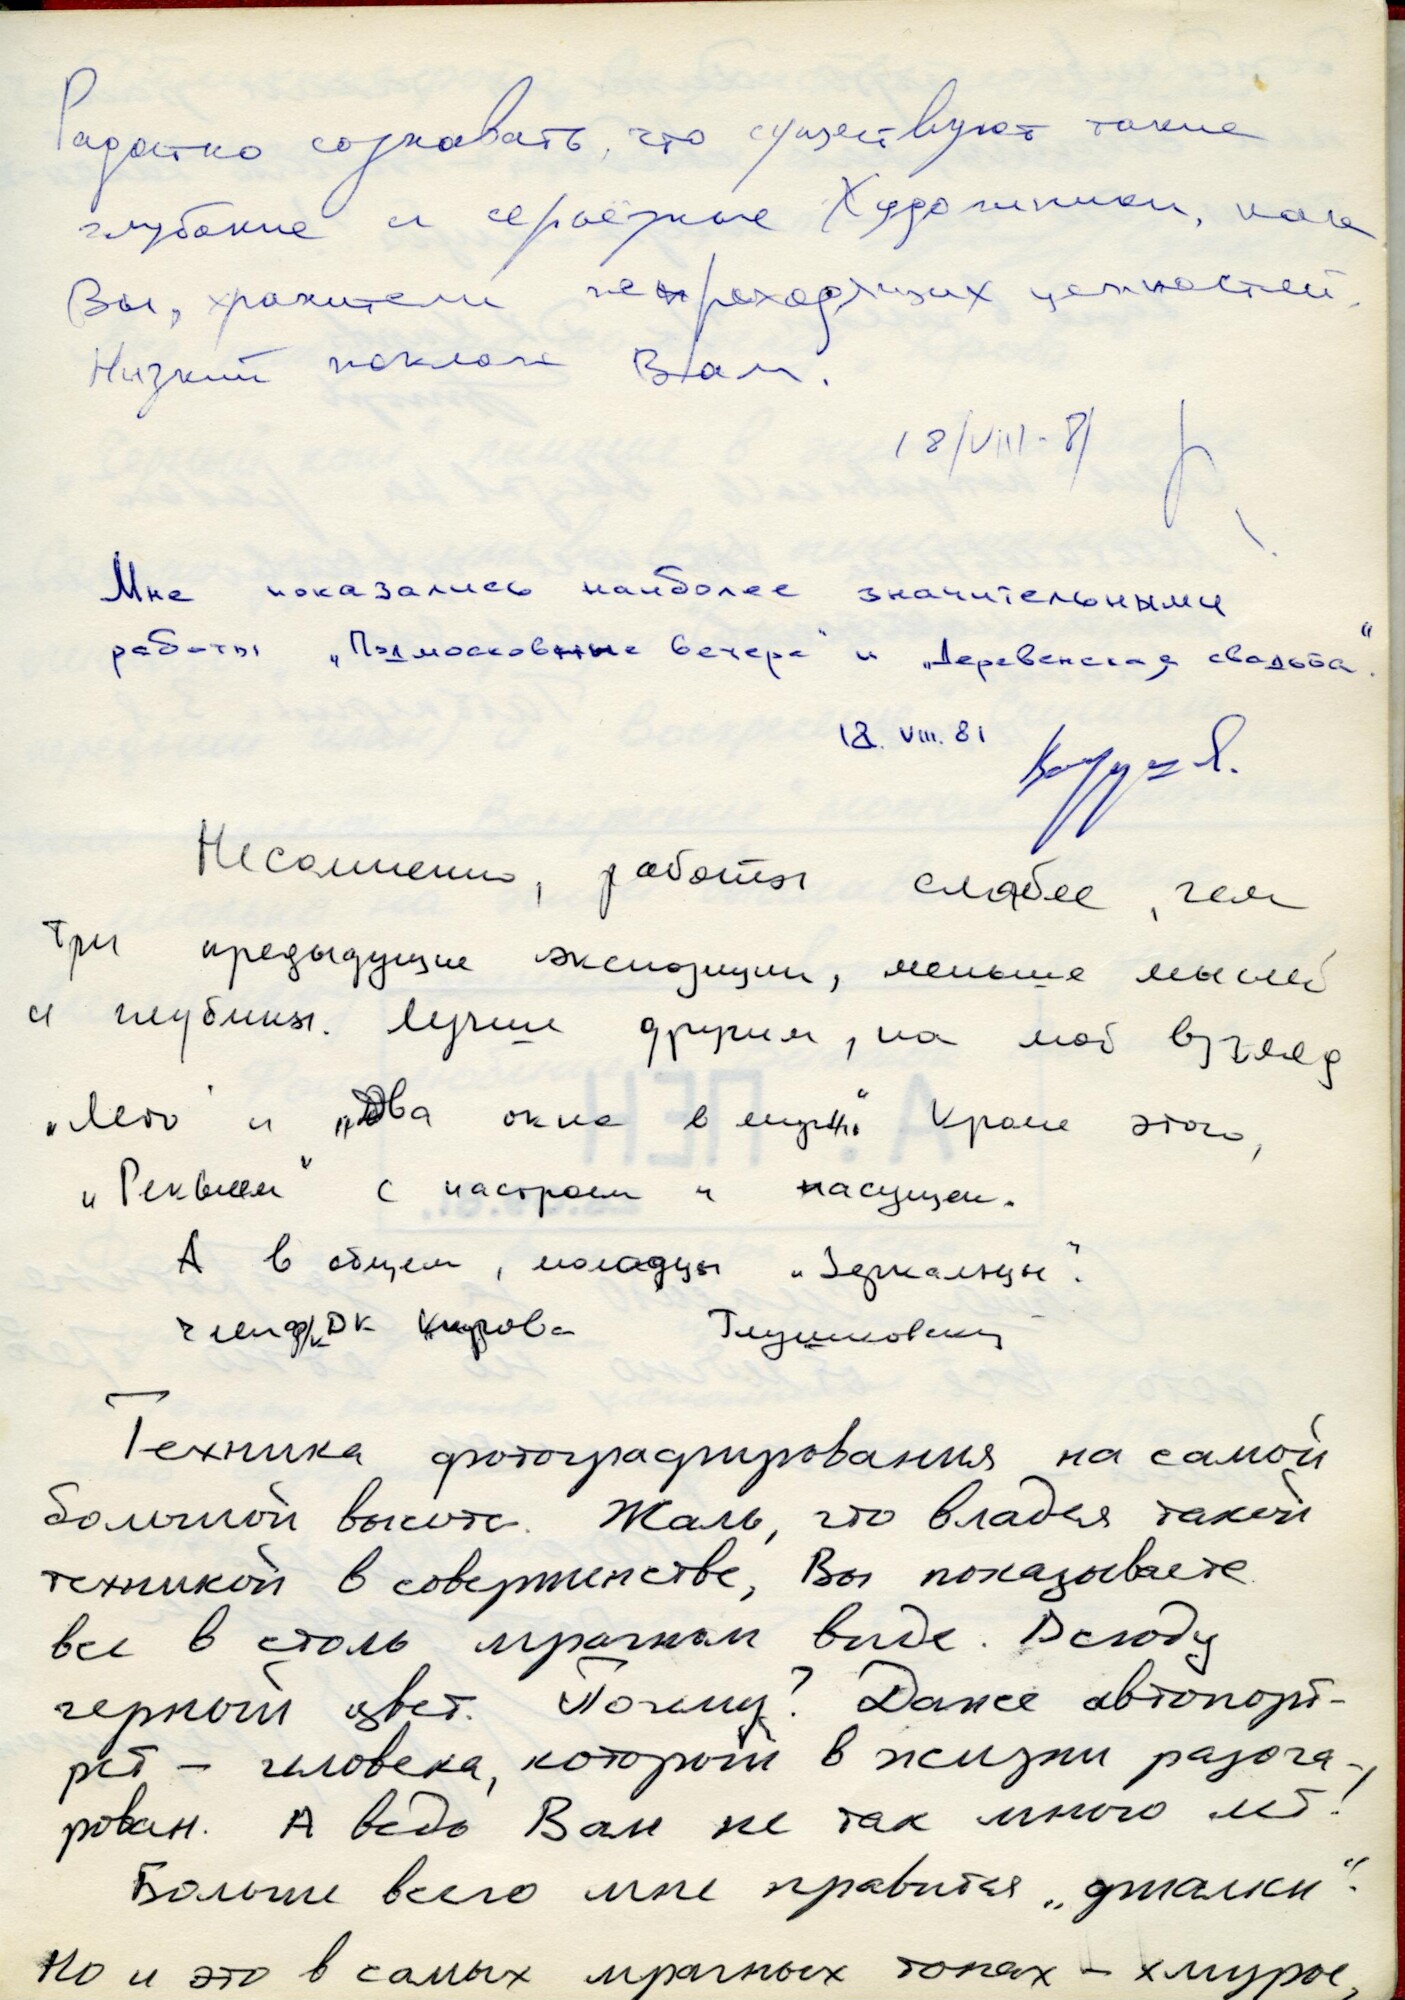 Радостно сознавать, что существуют такие
глубокие и серьёзные Художники, как
Вы, хранители непроходящих ценностей.
Низкий поклон Вам.
18/VIII-81
Мне показались наиболее значительными
работы „Подмосковные вечера" и „Деревенская свадьба".
18. VIII. 81
Несомненно, работы слабее, чем
три предыдущие экспозиции, меньше мыслей
и глубины. Лучше других, на мой взгляд
„Лето" и „Два окна в Кроме этого,
„Реквием" с настроем и насущен.
А в общем, молодцы „Зеркальцы".
член ф/к ДК Кирова Глушковский
Техника фотографирования на самой
большой высоте. Жаль, что владея такой
техникой в совершенстве, Вы показываете
все в столь мрачном виде. Всюду
черный цвет. Почему? Даже автопорт-
рет – человека, который в жизни разоча-
рован. А ведь Вам не так много лет!
Больше всего мне нравится
Но и это в самых мрачных тонах – хмурое,
А. ПЕН